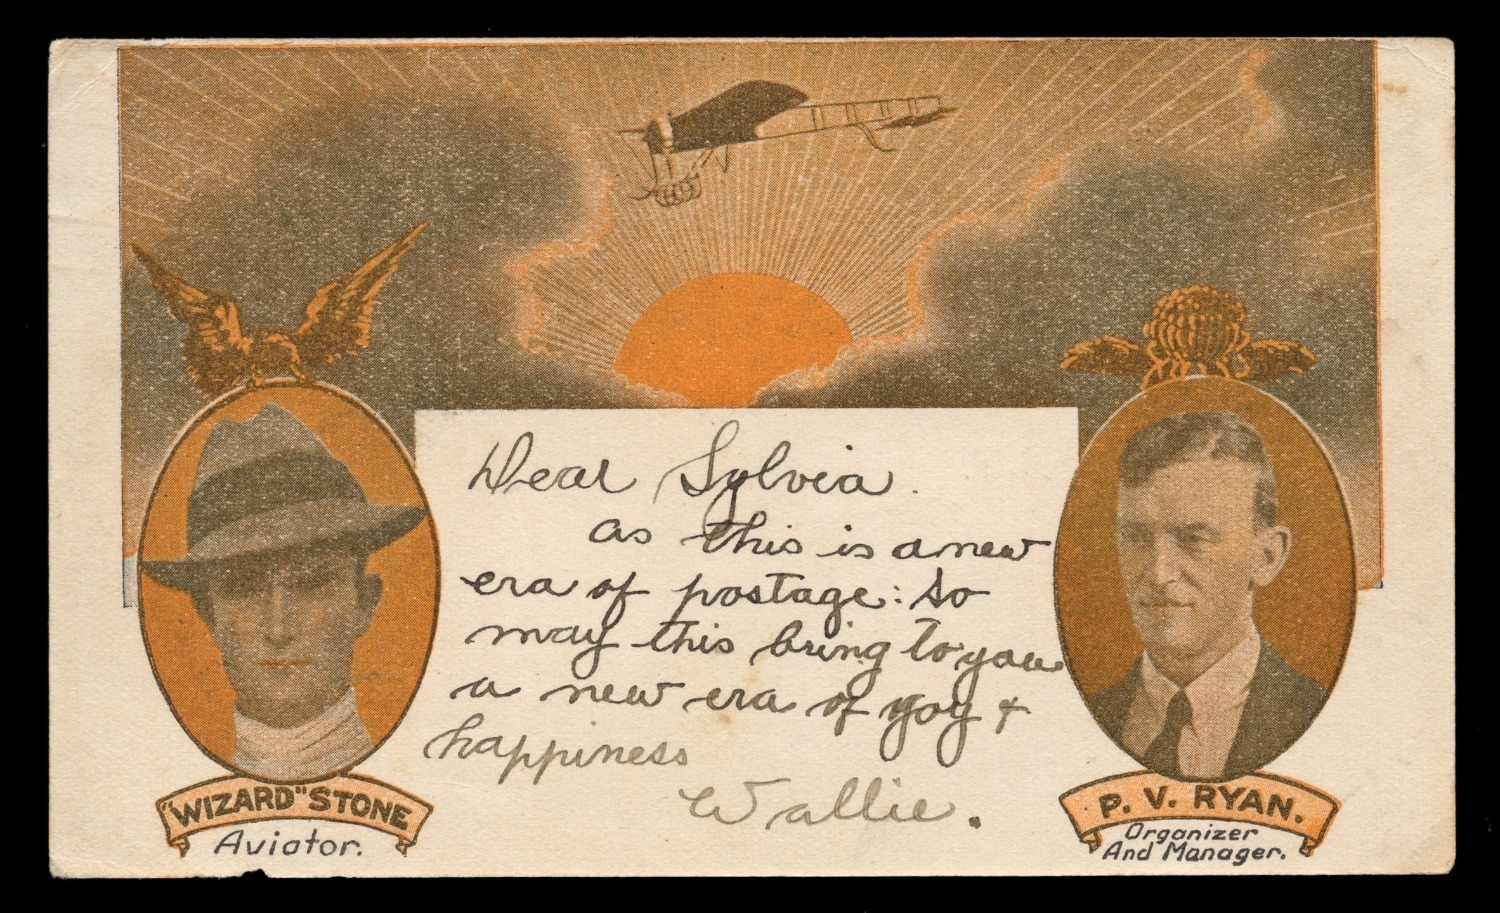 Dear Sylvia.
as this is a new
era of postage: so
may this bring to you
a new era of yoy &
happiness
Wallie.
"WIZARD" STONE
Aviator.
P. V. RYAN.
Organizer
And Manager.